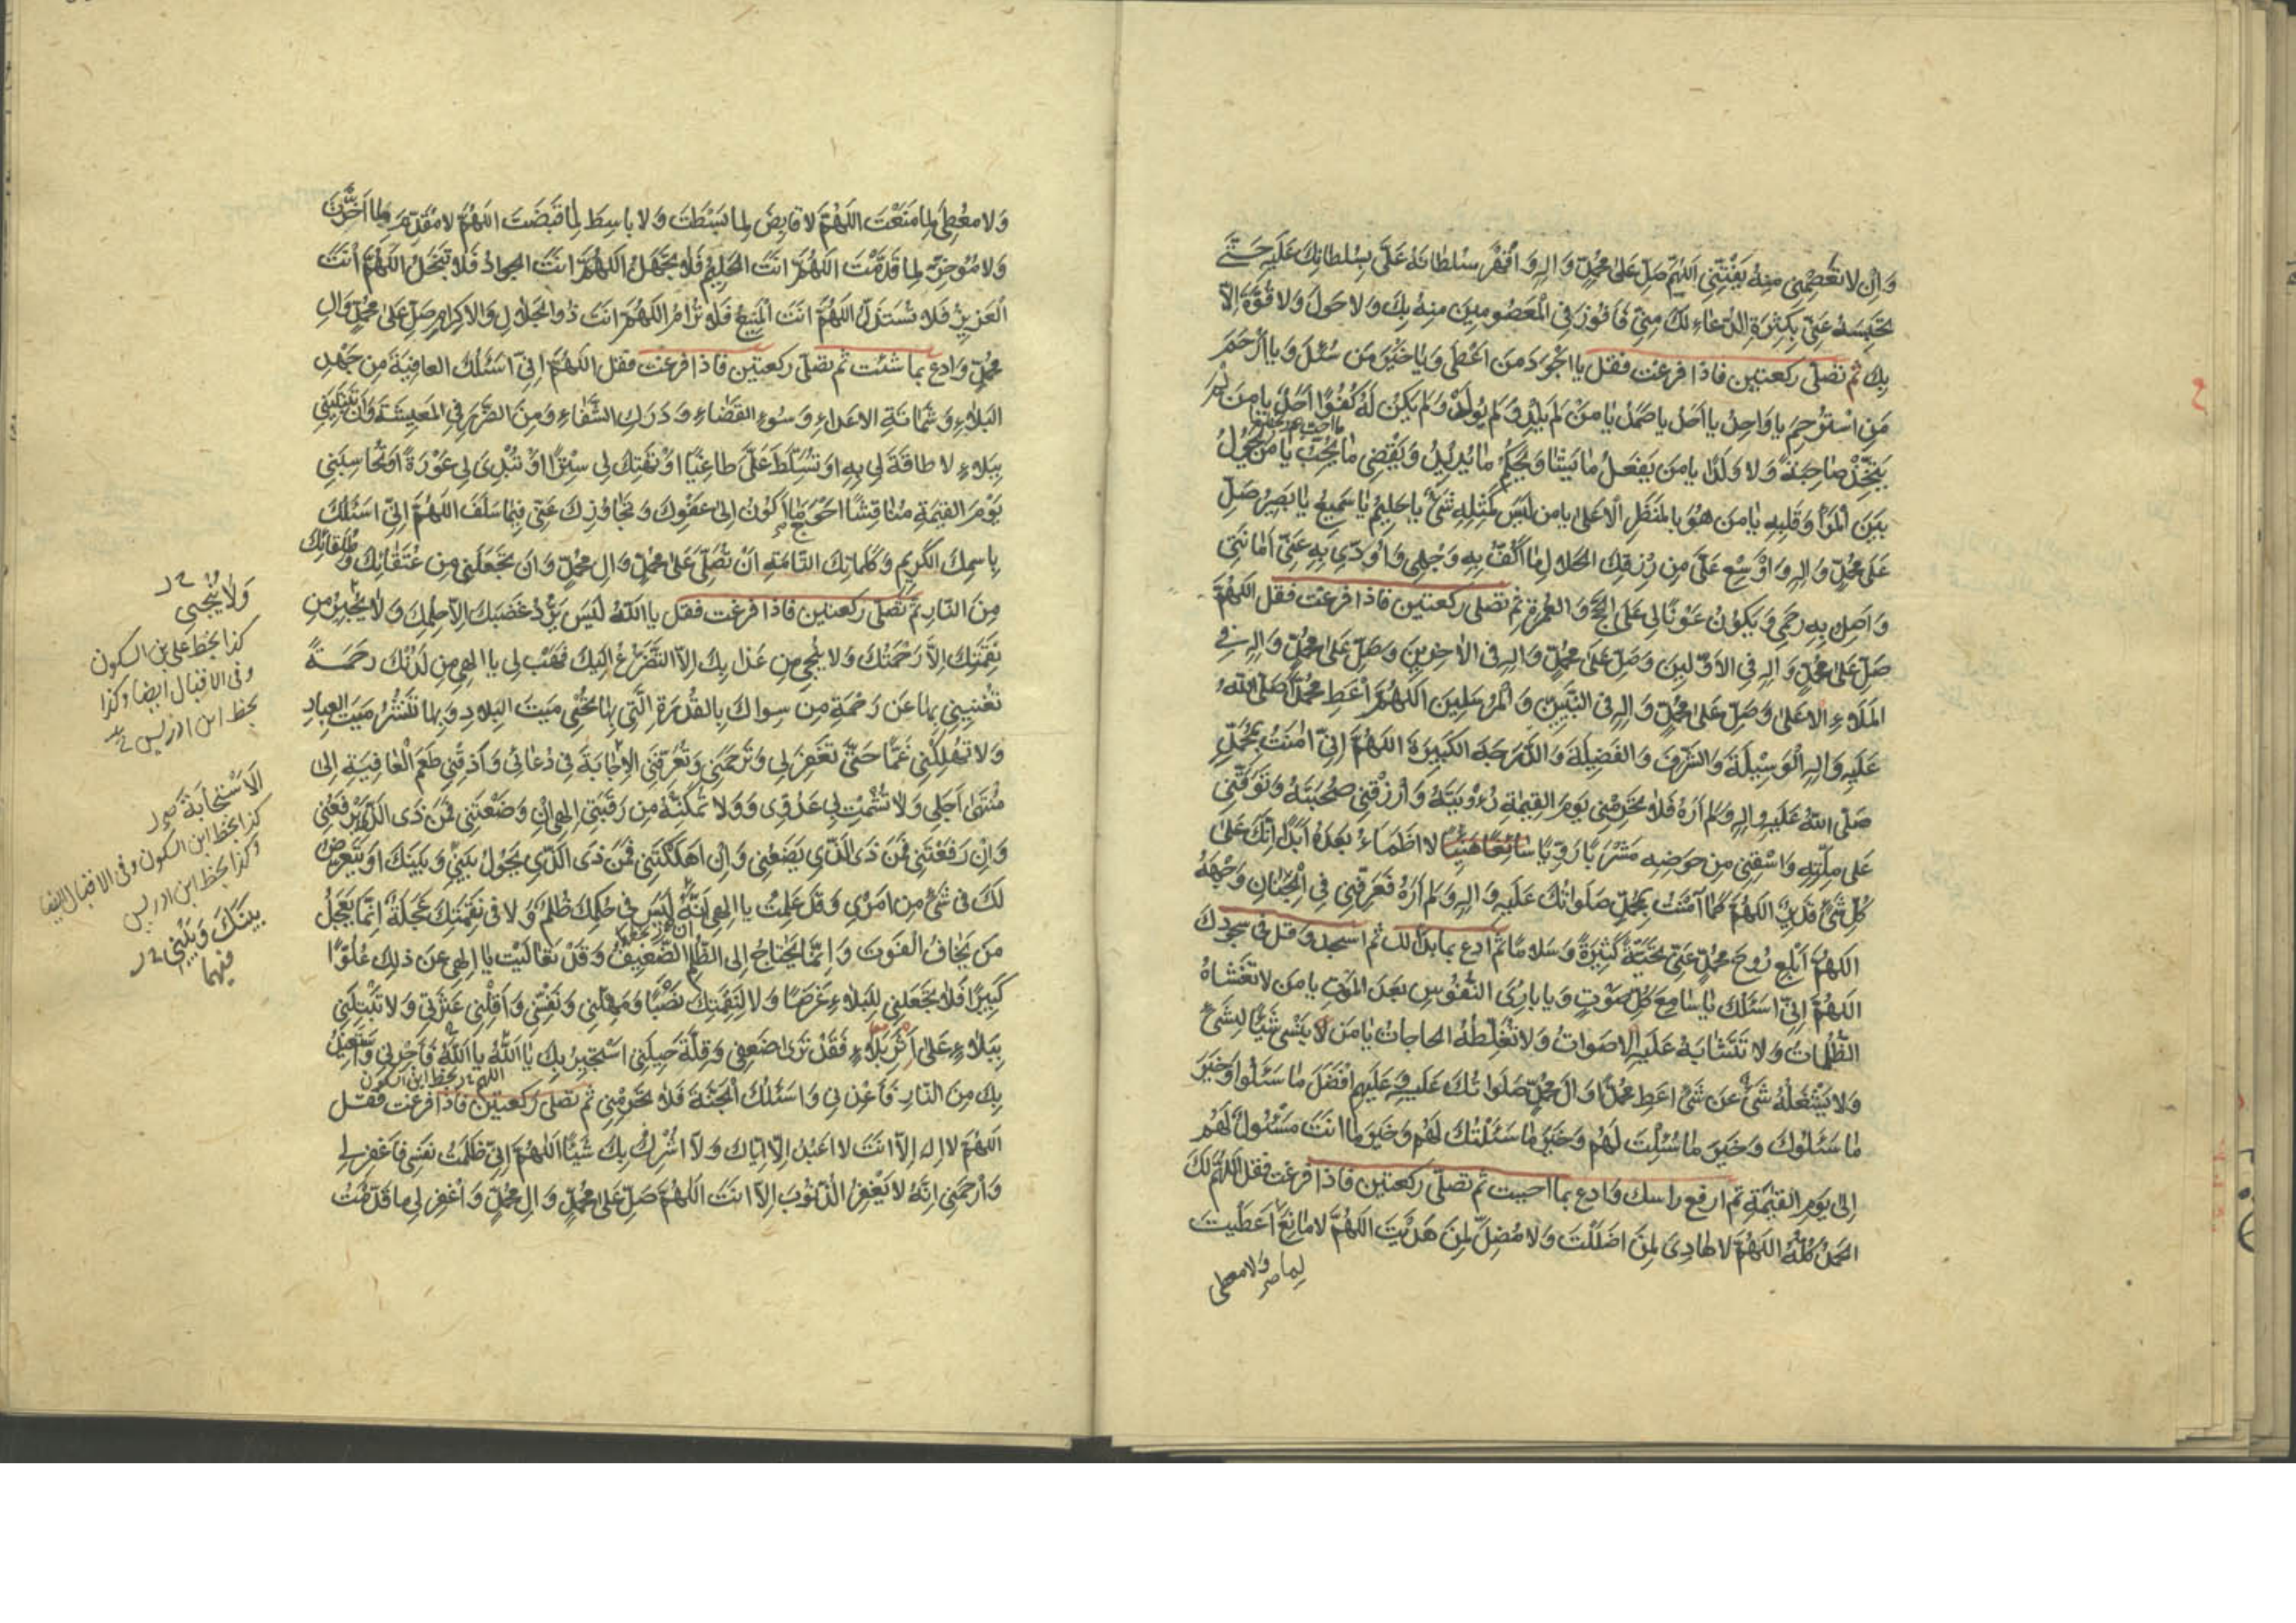 وَاِنْ لا تَعْصِمْنى مِنهُ يَفْتِنِّى اَللّهُمَّ صَلِّ عَلى مُحمَّدٍ وَالِهِ وَاقْهَرْ سُلطانَهُ عَلَىَّ بِسُلطانِكَ عَلَيهِ حَتّى
تَحْبِسَهُ عَنّى بِكَثرَةِ الدُّعاءِ لَكَ مِنّى فَاَفُوزَ فِى الْمَعصُومينَ مِنهُ بِكَ وَلا حَولَ وَلا قُوَّةَ اِلاّ
بِكَ ثُمَّ تصلّى ركعتين فاذا فرغت فقل يا اَجْوَدَ مَن اَعْطى وَيا خَيْرَ مَن سُئِلَ وَيا اَرْحَمَ
مَنِ اسْتُرْحِمَ يا وَاحِدُ يا اَحَدُ يا صَمَدُ يا مَنْ لَم يَلِدْ وَلَم يُولَدْ وَلَم يَكُنْ لَهُ كُفُوًا اَحَدٌ يا مَن لَم
يَتَّخِذْ صاحِبَةً وَلا وَلَدًا يا مَن يَفعَلُ ما يَشا وَيَحكُمُ ما يُريدُ وَيَقْضى ما يُحِبُّ يا مَن يَحُولُ
بَينَ الْمَرْءِ وَقَلبِهِ يا مَن هُوَ بِالمَنظَرِ الاَعلى يا مَن لَيسَ كَمِثلِهِ شَىْءٌ يا حَليمُ يا سَميعُ يا بَصيرُ صَلِّ
عَلى مُحمَّدٍ وَالِهِ وَاَوْسِعْ عَلَىَّ مِن رِزقِكَ الحَلالِ ما اَكُفُّ بِهِ وَجْهى وَاُؤَدّى بِهِ عَنّى اَمانَتى
وَاَصِلُ بِهِ رَحِمى وَيَكُونُ عَوْنًا لى عَلَى الحَجِّ وَالعُمرَةِ ثم تصلى ركعتين فاذا فرغت فقل اللهُمَّ
صَلِّ عَلى مُحمَّدٍ وَالِهِ فِى الاَوَّلينَ وَصَلِّ عَلى مُحمَّدٍ وَالِهِ فِى الاخِرينَ وَصَلِّ عَلى مُحمَّدٍ وَالِهِ فِى
المَلَاءِ الاعلى وَصَلِّ عَلى مُحمَّدٍ وَالِهِ فِى النَّبِيّينَ وَالْمُرسَلينَ اَللهُمَّ اَعْطِ مُحمَّدًا صَلَّى اللهُ
عَلَيهِ وَالِهِ الْوَسيلَةَ وَالشَّرَفَ وَالفَضيلَةَ وَالدَّرَجَةَ الكَبيرَةَ اللهُمَّ اِنّى امَنتُ بِمُحمَّدٍ
صَلَّى اللهُ عَلَيهِ وَالِهِ وَلَم اَرَهُ فَلا تَحرِمْنى يَومَ القِيمَةِ رُؤْيَتَهُ وَارْزُقْنى صُحْبَتَهُ وَتَوَفَّنى
عَلى مِلَّتِهِ وَاسْقِنى مِن حَوضِهِ مَشْرَبًا رَوِيًّا سائِغًا هَنيئًا لا اَظْمَاءُ بَعدَهُ اَبَدًا اِنَّكَ عَلى
كُلِّ شَىْءٍ قَديرٌ اللهُمَّ كَما آمَنتُ بِمُحمَّدٍ صَلَواتُكَ عَلَيهِ وَالِهِ وَلَم اَرَهُ فَعَرِّفْنى فِى الْجِنانِ وَجْهَهُ
اللهُمَّ اَبْلِغْ رُوحَ مُحمَّدٍ عَنّى تَحِيَّةً كَثيرَةً وَسَلامًا ثُمّ ادع بما بدا لك ثم اسجد وقل فى سجودك
اللهُمَّ اِنّى اَسئَلُكَ يا سامِعَ كُلِّ صَوْتٍ وَيا بارِئَ النُّفُوسِ بَعدَ المَوتِ يا مَن لا تَغشاهُ
الظُّلُماتُ وَلا تَتَشابَهُ عَلَيهِ الاصواتُ وَلا تُغَلِّطُهُ الحاجاتُ يا مَن لا يَنْسى شَيئًا لِشَىْءٍ
وَلا يَشْغَلُهُ شَىْءٌ عَن شَىْءٍ اَعطِ مُحمَّدًا وَالَ مُحمَّدٍ صَلَواتُكَ عَلَيهِ وَعَلَيهِم اَفضَلَ ما سَئَلُوا وَخَيرَ
ما سَئَلُوكَ وَخَيرَ ما سُئِلْتَ لَهُم وَخَيرَ ما سَئَلتُكَ لَهُم وَخَيرَ ما اَنتَ مَسْئُولٌ لَهُم
اِلى يَومِ القِيمَةِ ثم ارفع راسك وادع بما احببت ثم تصلى ركعتين فاذا فرغت فقل اللهُمَّ لَكَ
الحَمدُ كُلُّهُ اللهُمَّ لا هادِىَ لِمَن اَضلَلْتَ وَلا مُضِلَّ لِمَن هَدَيْتَ اللهُمَّ لا مانِعَ لِما اَعطَيتَ
ولا معطى
وَلا مُعْطِىَ لِما مَنَعْتَ اللهُمَّ لا قابِضَ لِما بَسَطْتَ وَلا باسِطَ لِما قَبَضْتَ اللهُمَّ لا مُقَدِّمَ لِما اَخَّرْتَ
وَلا مُؤَخِّرَ لِما قَدَّمْتَ اللهُمَّ اَنتَ الحَليمُ فَلا تَجهَلُ اللهُمَّ اَنتَ الجَوادُ فَلا تَبخَلُ اللهُمَّ اَنتَ
الْعَزيزُ فَلا تُسْتَذَلُّ اللهُمَّ اَنتَ الْمَنيعُ فَلا تُرامُ اللهُمَّ اَنتَ ذُو الجَلالِ وَالاِكرامِ صَلِّ عَلى مُحمَّدٍ وَالِ
مُحمَّدٍ وَادع بما شئت ثم تصلّى ركعتين فاذا فرغت فقل اللهُمَّ اِنّى اَسئَلُكَ العافِيَةَ مِن جَهْدِ
البَلاءِ وَشَماتَةِ الاعداءِ وَسُوءِ القَضاءِ وَدَرَكِ الشَّقاءِ وَمِنَ الضَّرَرِ فِى المَعيشَةِ وَاَن تَبْتَلِيَنى
بِبَلاءٍ لا طاقَةَ لى بِهِ اَو تُسَلِّطَ عَلَىَّ طاغِيًا اَوْ تَهْتِكَ لى سِتْرًا اَوْ تُبْدِىَ لى عَوْرَةً اَو تُحاسِبَنى
يَوْمَ القِيمَةِ مُناقِشًا اَحْوَجَ ما اَكُونُ اِلى عَفْوِكَ وَتَجاوُزِكَ عَنّى فيما سَلَفَ اللهُمَّ اِنّى اَسئَلُكَ
بِاسمِكَ الكَريمِ وَكَلِماتِكَ التّامَّةِ اَنْ تُصَلِّىَ عَلى مُحمَّدٍ وَالِ مُحمَّدٍ وَاَن تَجعَلَنى مِن عُتَقائِكَ وَطُلَقائِكَ
مِنَ النّارِ ثم تصلّى ركعتين فاذا فرغت فقل يا اللهُ لَيسَ يَرُدُّ غَضَبَكَ اِلاّ حِلمُكَ وَلا يُجيرُ مِن
نِقْمَتِكَ اِلاّ رَحْمَتُكَ وَلا يُنْجى مِن عَذابِكَ اِلاَّ التَّضَرُّعُ اِلَيكَ فَهَبْ لى يا اِلهى مِن لَدُنْكَ رَحمَةً
تُغْنينى بِها عَن رَحْمَةِ مَن سِواكَ بِالقُدرَةِ الَّتى بِها تُحْيى مَيتَ البِلادِ وَبِها تَنْشُرُ مَيتَ العِبادِ
وَلا تُهْلِكْنى غَمًّا حَتّى تَغفِرَ لى وَتَرحَمَنى وَتُعَرِّفَنِى الاِجابَةَ فى دُعائى وَاَذِقْنى طَعْمَ الْعافِيَةِ اِلى
مُنْتَهى اَجَلى وَلا تُشْمِتْ بى عَدُوّى وَلا تُمَكِّنْهُ مِن رَقَبَتى اِلهى اِنْ وَضَعْتَنى فَمَن ذَا الَّذى يَرفَعُنى
وَاِنْ رَفَعْتَنى فَمَن ذَا الَّذى يَضَعُنى وَاِن اَهلَكْتَنى فَمَن ذَا الَّذى يَحُولُ بَيْنى وَبَينَكَ اَو يَتَعَرَّضُ
لَكَ فى شَىْءٍ مِن اَمرى وَقَد عَلِمتُ يا اِلهى اَنَّهُ لَيسَ فى حُكمِكَ ظُلمٌ وَلا فى نَقِمَتِكَ عَجَلَةٌ اِنَّما يَعجَلُ
مَن يَخافُ الفَوتَ وَاِنَّما يَحتاجُ اِلَى الظُّلمِ الضَّعيفُ وَقَدْ تَعالَيْتَ يا اِلهى عَن ذلِكَ عُلُوًّا
كَبيرًا فَلا تَجعَلنى لِلبَلاءِ غَرَضًا وَلا لِنَقِمَتِكَ نَصْبًا وَمَهِّلْنى وَنَفِّسْنى وَاَقِلْنى عَثرَتى وَلا تَبْتَلِيَنّى
بِبَلاءٍ عَلى اَثَرِ بَلاءٍ فَقَدْ تَرى ضَعفى وَقِلَّةَ حيلَتى اَسْتَجيرُ بِكَ يا اَللهُ يا اَللهُ فَاَجِرْنى وَاَستَعيذُ
بِكَ مِنَ النّارِ فَاَعِذْنى وَاَسئَلُكَ الْجَنَّةَ فَلا تَحرِمْنى ثم تصلى ركعتين فاذا فرغت فقل
اللهُمَّ لا اِلهَ اِلاّ اَنتَ لا اَعبُدُ اِلاّ اِيّاكَ وَلا اُشرِكُ بِكَ شَيئًا اللهُمَّ اِنّى ظَلَمتُ نَفسى فَاغفِر لى
وَارْحَمنى اِنَّهُ لا يَغْفِرُ الذُّنُوبَ اِلاّ اَنتَ اللهُمَّ صَلِّ عَلى مُحمَّدٍ وَالِ مُحمَّدٍ وَاغفِر لى ما قَدَّمْتُ
وَلا يُنْجى
كذا بخط على بن السكون
وفى الاقبال ايضا وكذا
بخط ابن ادريس
الاسْتِجابَةَ
كذا بخط ابن السكون وفى الاقبال ايضا
وكذا بخط ابن ادريس
بَينَكَ وَبَيْنى
فيهما